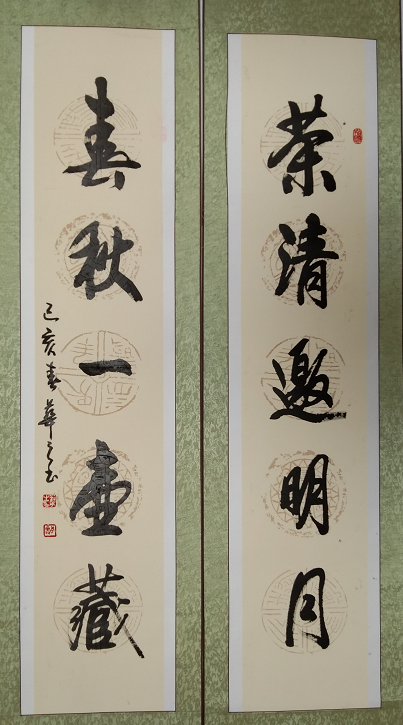 茶清邀明月
春秋一壺藏
己亥春華之书